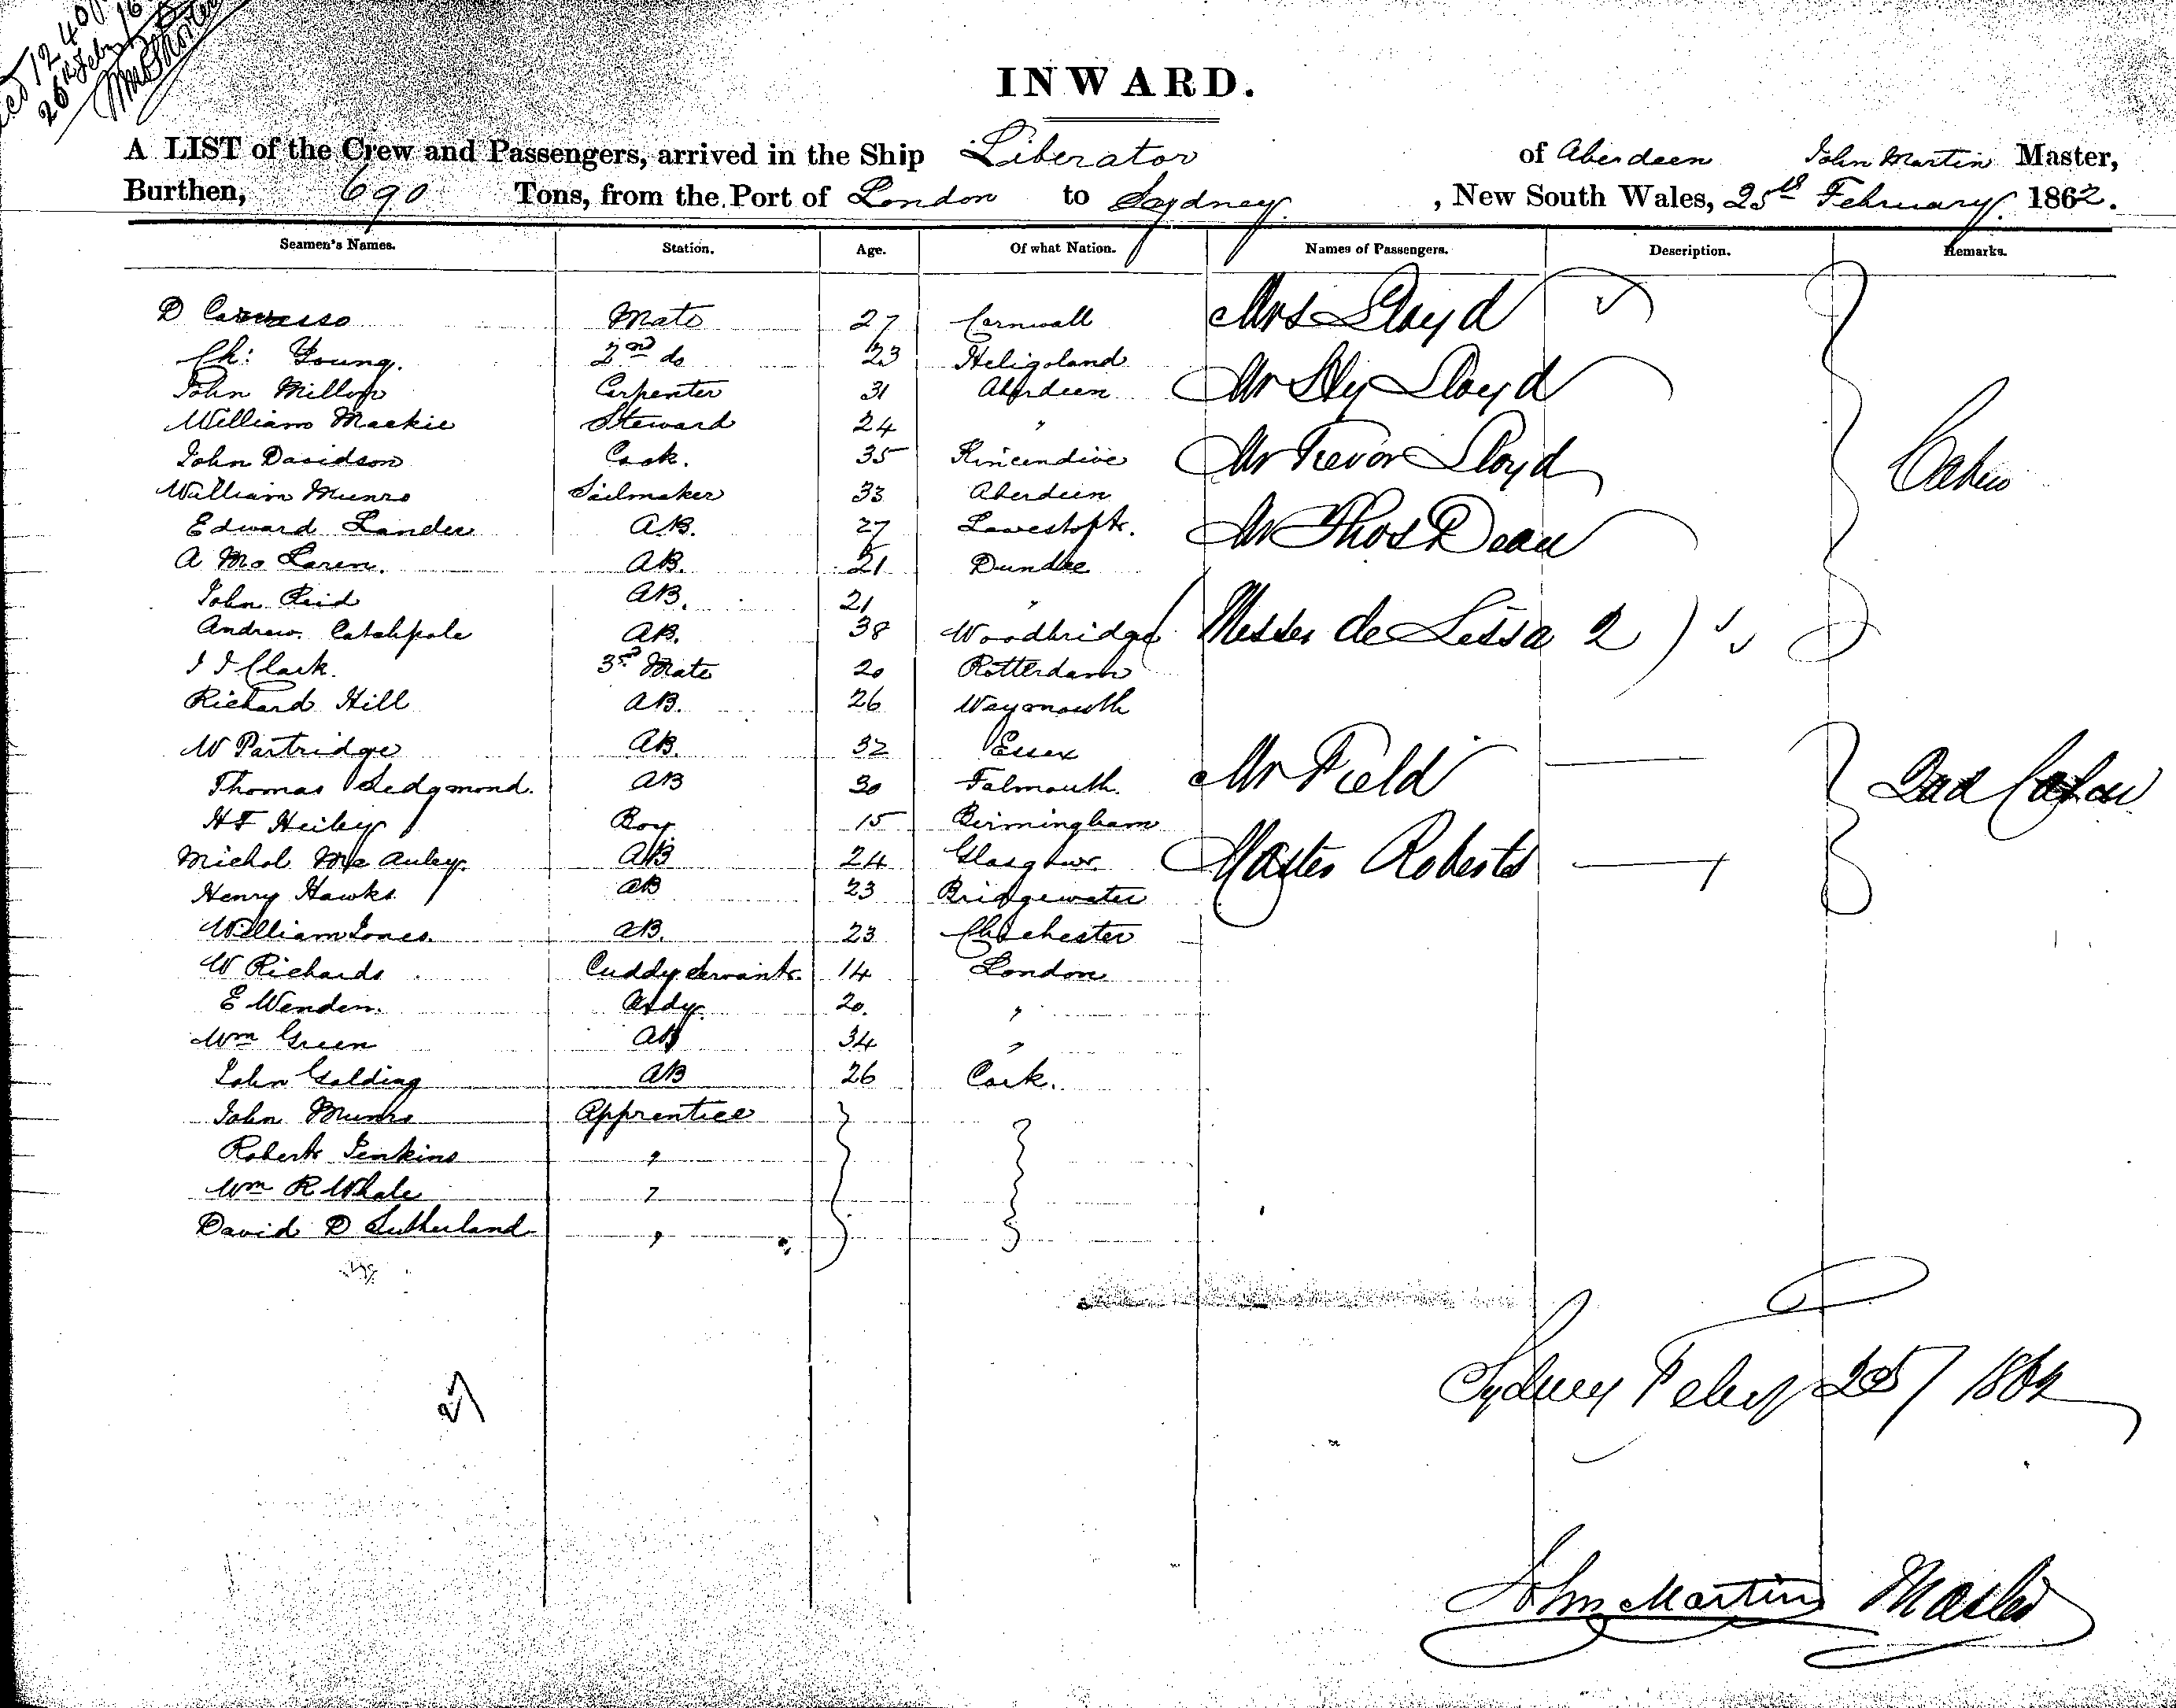 12 40
26th Feby
INWARD.
A LIST of the Crew and Passengers, arrived in the Ship Liberator of Aberdeen John Martin Master,
Burthen, 690 Tons, from the Port of London to Sydney, New South Wales, 25th February 1862.
Seamen's Names. Station. Age. Of what Nation. Names of Passengers. Description. Remarks.
D Carvosso Mate 27 Cornwall Mrs Lloyd
Ch: Young. 2nd do 23 Heligoland
John Millor Carpenter 31 Aberdeen Mr Lloyd
William Mackie Steward 24 "
John Davidson Cook. 35 Kincardine Mr Trevor Lloyd Cabin
William Munro Sailmaker 33 Aberdeen
Edward Lander A.B. 27 Lowestoft. Mr Thos Dean
A Mc Laren. AB. 21 Dundee
John Reid AB. 21 "
Andrew Catchpole AB. 38 Woodbridge (Messrs de Lissa 2)
J J Clark. 3rd Mate 20 Rotterdam
Richard Hill AB. 26 Waymouth
W Partridge AB. 32 Essex
Thomas Sedgmond. AB 30 Falmouth. Mr Field 2nd Cabin
H F Heiley Boy 15 Birmingham
Michal McAuley. AB 24 Glasgow. Master Roberts
Henry Hawks. AB 23 Bridgewater
William Jones. AB. 23 Chichester
W Richards Cuddy Servant. 14 London
E Wenden. Ordy. 20. "
Wm Green AB 34 "
John Golding AB 26 Cork.
John Munro Apprentice
Robert Jenkins "
Wm R Whale "
David D Sutherland "
27
Sydney Feby 25/1862
John Martin Master